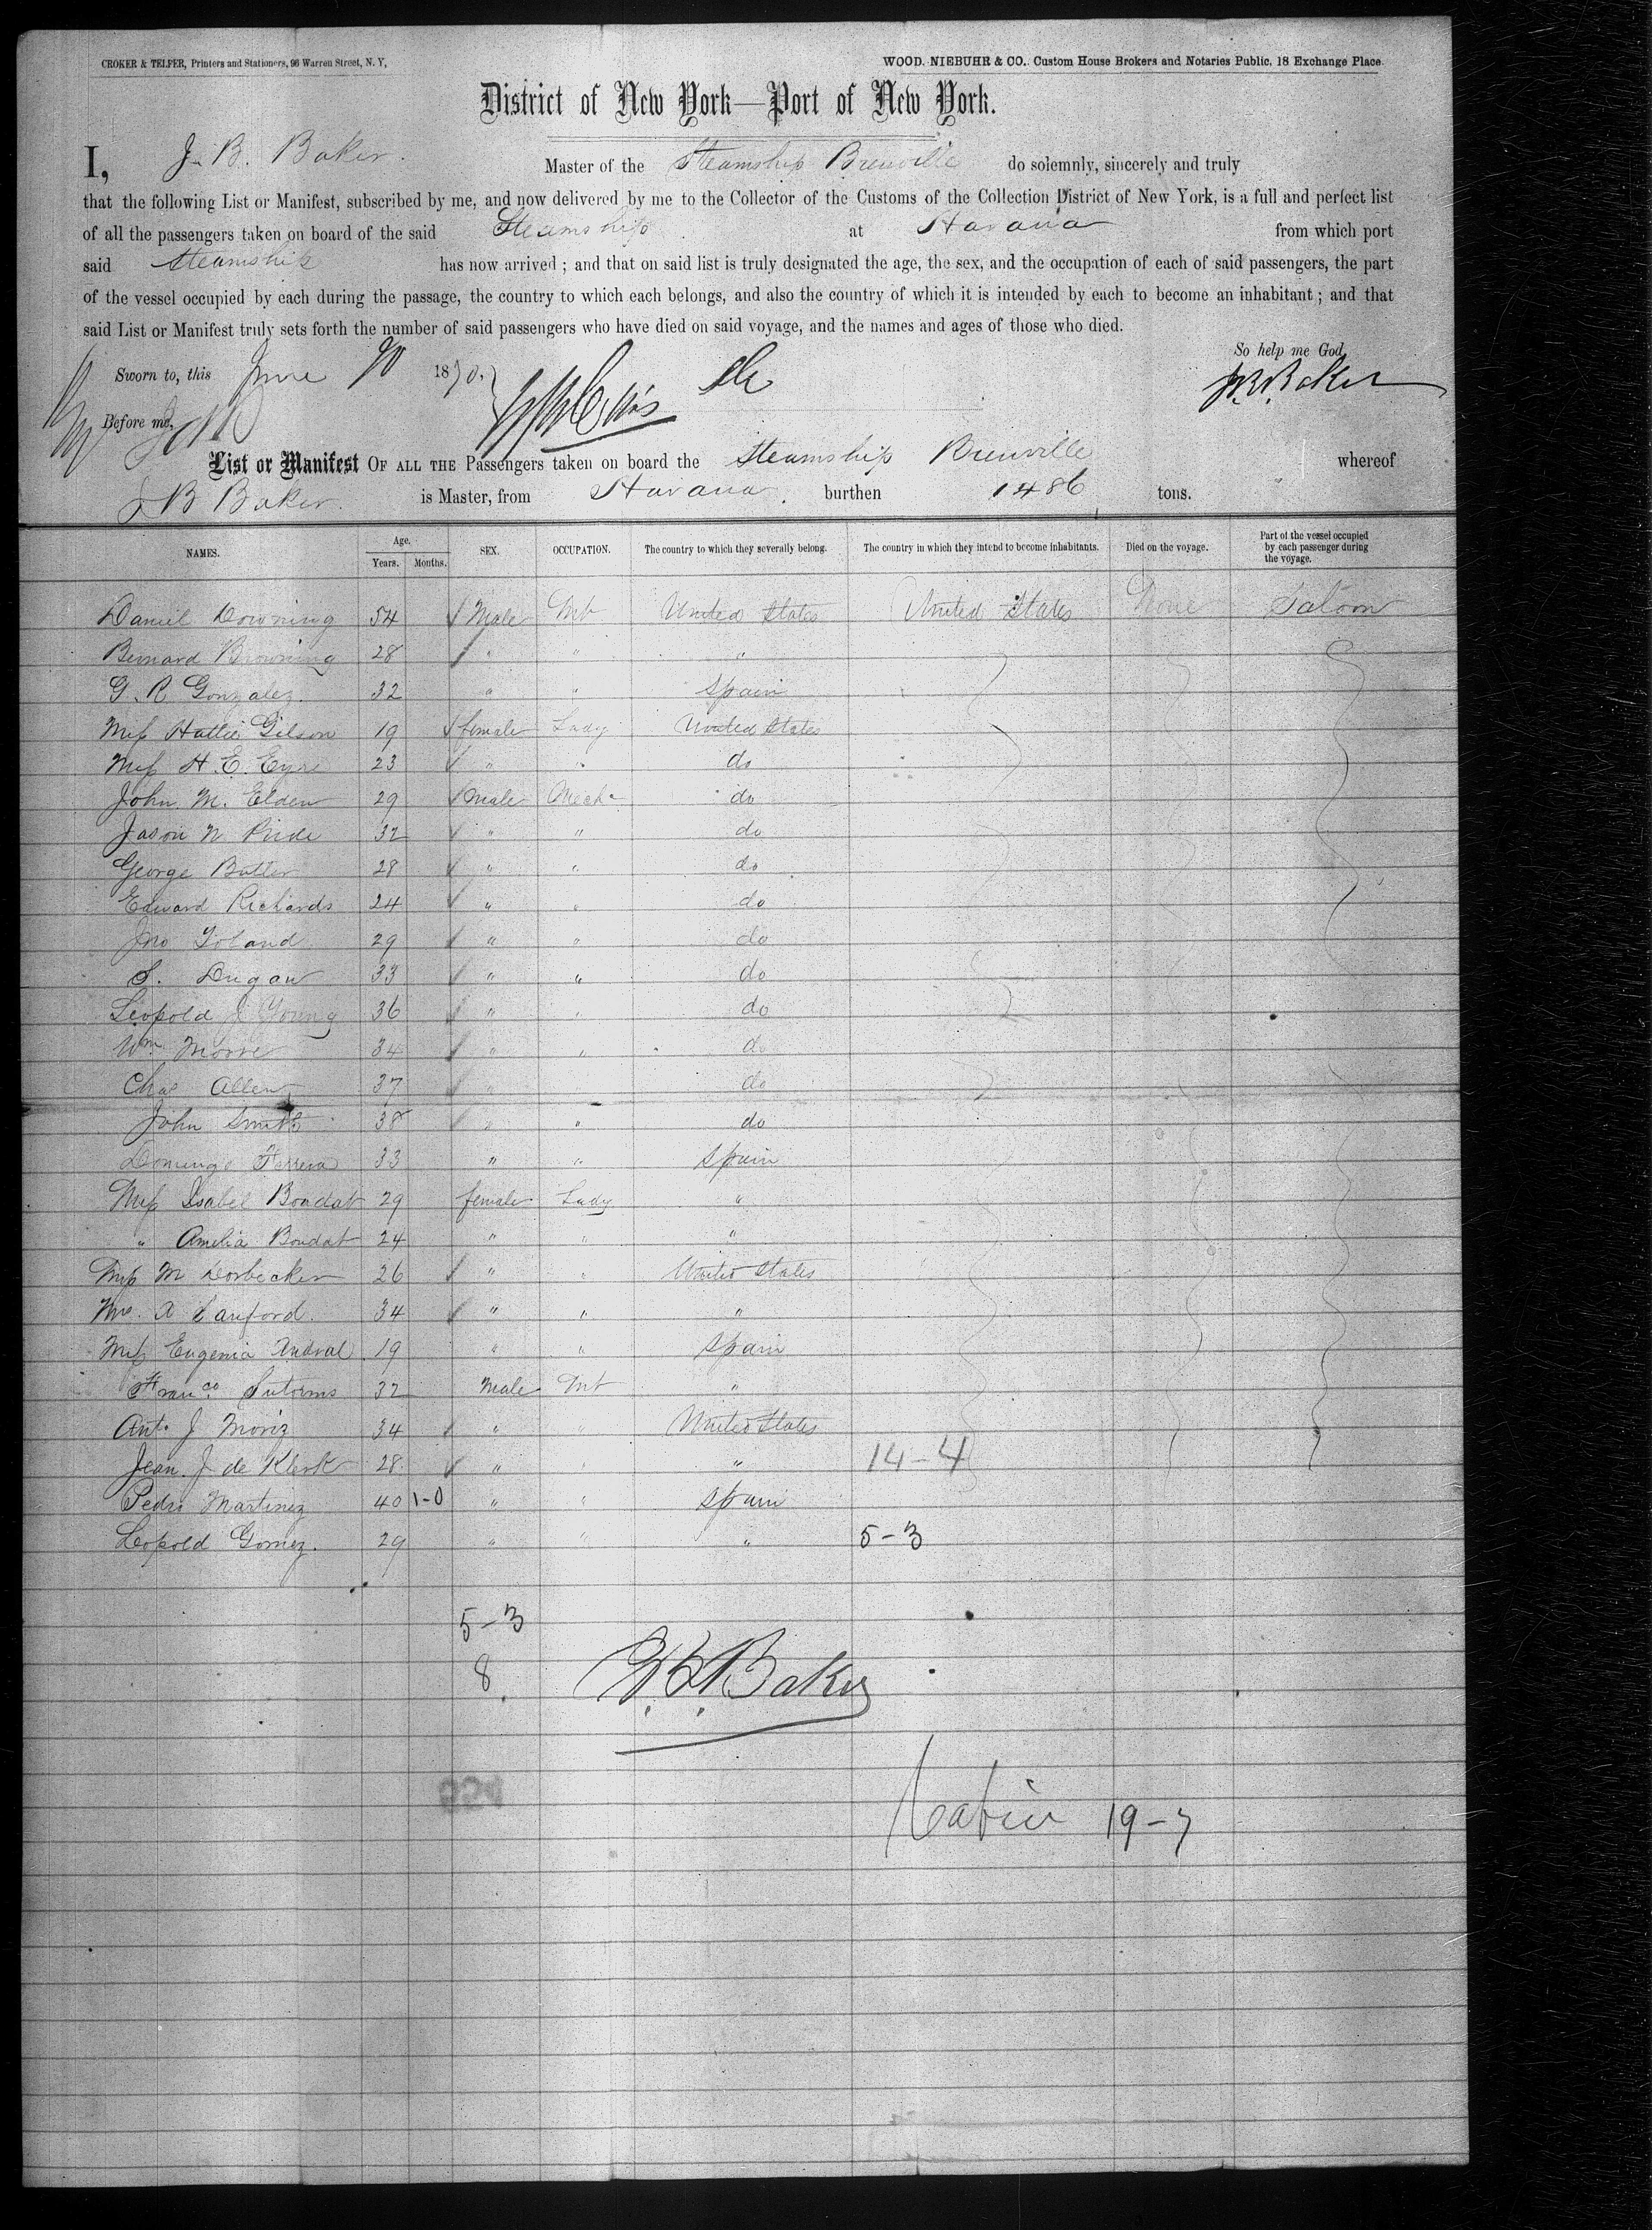 CROKER & TELFER, Printers and Stationers, 96 Warren Street, N. Y,
WOOD. NIEBUHR & CO.. Custom House Brokers and Notaries Public. 18 Exchange Place.
District of New York—Port of New York.
I, J. B. Baker. Master of the Steamship Bienville do solemnly, sincerely and truly
that the following List or Manifest, subscribed by me, and now delivered by me to the Collector of the Customs of the Collection District of New York, is a full and perfect list
of all the passengers taken on board of the said Steamship at Havana from which port
said Steamship has now arrived ; and that on said list is truly designated the age, the sex, and the occupation of each of said passengers, the part
of the vessel occupied by each during the passage, the country to which each belongs, and also the country of which it is intended by each to become an inhabitant ; and that
said List or Manifest truly sets forth the number of said passengers who have died on said voyage, and the names and ages of those who died.
So help me God,
Sworn to, this June 1870. J. B. Baker
Before me,
List or Manifest OF ALL THE Passengers taken on board the Steamship Bienville whereof
J B Baker. is Master, from Havana. burthen 1486 tons.
NAMES. Age. Years. Months. SEX. OCCUPATION. The country to which they severally belong. The country in which they intend to become inhabitants. Died on the voyage. Part of the vessel occupied by each passenger during the voyage.
Daniel Downing 54 Male Mt United States United States None Saloon
Bernard Browning 28 " " "
G. R Gonzalez 32 " " Spain
Miss Hattie Gilson 19 female Lady United States
Miss H. E. Eyre 23 " " do
John M. Elden 29 Male Mech do
Jason N Pride 32 " " do
George Butler 28 " " do
Edward Richards 24 " " do
Jno Toland 29 " " do
S. Dugan 33 " " do
Leopold J Young 36 " " do
Wm Moore 34 " " do
Chas Allen 37 " do
John Smith 38 " " do
Domingo Ferrera 33 " " Spain
Miss Isabel Boudat 29 female Lady "
" Amelia Boudat 24 " " "
Miss M Dorbecker 26 " " United States
Mrs. A Sanford. 34 " " "
Miss Eugenia Andral 19 " " Spain
Franco 32 Male Mt "
Anto J Moriz 34 " " United States
Jean. J de Klerk 28 " " " 14-4
Pedro Martinez 40 1-0 " " Spain
Leopold Gomez. 29 " " " 5-3
5-3
8.
J. B. Baker
Cabin 19-7